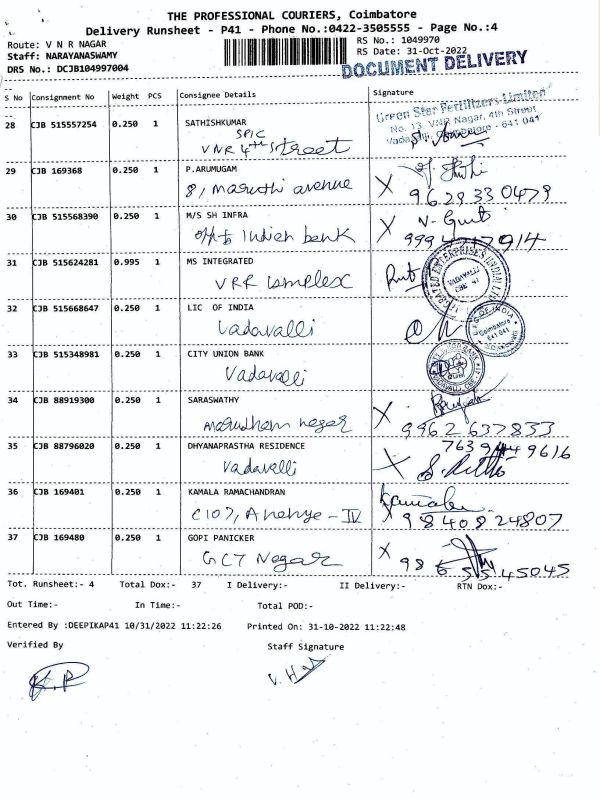 THE PROFESSIONAL COURIERS, Coimbatore
Delivery Runsheet - P41 - Phone No.:0422-3505555 - Page No.:4
Route: V N R NAGAR
RS No.: 1049970
Staff: NARAYANASWAMY
RS Date: 31-Oct-2022
DRS No.: DCJB104997004
DOCUMENT DELIVERY
S No Consignment No Weight PCS Consignee Details Signature
28 CJB 515557254 0.250 1 SATHISHKUMAR
SPIC
VNR 4th Street
Green Star Fertilizers Limited
No. 13, VNR Nagar, 4th Street
Vadavalli, Coimbatore - 641 041
29 CJB 169368 0.250 1 P.ARUMUGAM
8, maruthi avenue
X 9629330479
30 CJB 515568390 0.250 1 M/S SH INFRA
opp to Indian bank
X
31 CJB 515624281 0.995 1 MS INTEGRATED
VRR complex
VADAVALLI
CBE - 41
32 CJB 515668647 0.250 1 LIC OF INDIA
Vadavalli
Coimbatore
641 041
33 CJB 515348981 0.250 1 CITY UNION BANK
Vadavalli
34 CJB 88919300 0.250 1 SARASWATHY
marudham nagar
X 9962637833
35 CJB 88796020 0.250 1 DHYANAPRASTHA RESIDENCE
Vadavalli
X
36 CJB 169401 0.250 1 KAMALA RAMACHANDRAN
C107, Ananya - IV
Kamala
X 9840824807
37 CJB 169480 0.250 1 GOPI PANICKER
GCT Nagar
X
Tot. Runsheet:- 4 Total Dox:- 37 I Delivery:- II Delivery:- RTN Dox:-
Out Time:- In Time:- Total POD:-
Entered By :DEEPIKAP41 10/31/2022 11:22:26 Printed On: 31-10-2022 11:22:48
Verified By Staff Signature
K.P